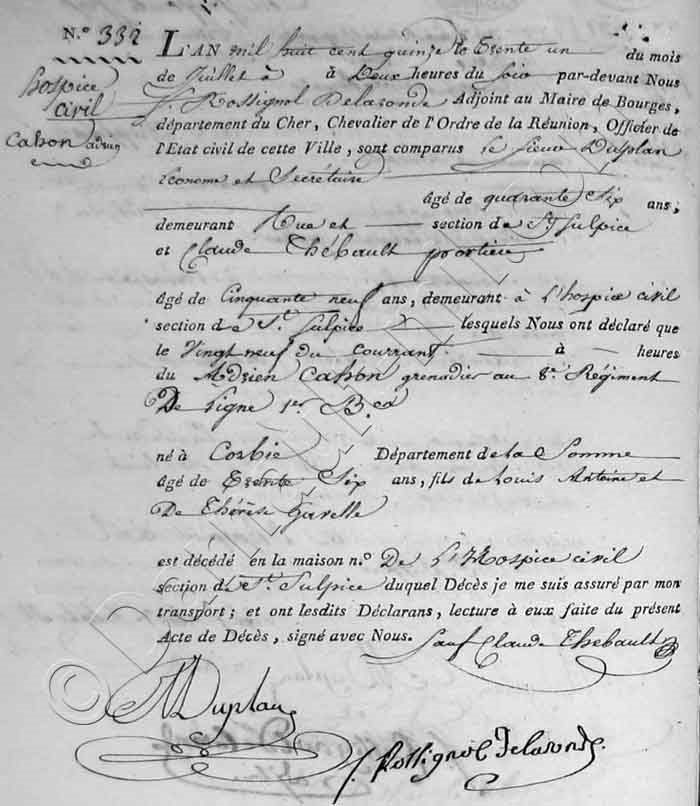 N.º 332
hospice
civil
Cahon adrien
L'AN mil huit cent quinze le Trente un du mois
de Juillet à à Deux heures du soir par-devant Nous
f. Rossignol Delaronde Adjoint au Maire de Bourges,
département du Cher, Chevalier de l'Ordre de la Réunion, Officier de
l'Etat civil de cette Ville, sont comparus le sieur Duplan
Econome et Secrétaire
âgé de quarante Six ans,
demeurant Rue et section de St Sulpice
et Claude Thébault portier
âgé de Cinquante neuf ans, demeurant à l'hospice civil
section de St. Sulpice lesquels Nous ont déclaré que
le Vingt neuf du Courrant à heures
du Adrien Cahon grenadier au 8e. Régiment
De Ligne 1er B.on
né à Corbie Département de la Somme
âgé de Trente Six ans, fils de Louis Antoine et
De Thérèse Gavelle
est décédé en la maison n.º De l'Hospice civil
section de St. Sulpice duquel Décès je me suis assuré par mon
transport; et ont lesdits Déclarans, lecture à eux faite du présent
Acte de Décès, signé avec Nous. Sauf Claude Thebault
Duplan
f. Rossignol Delaronde